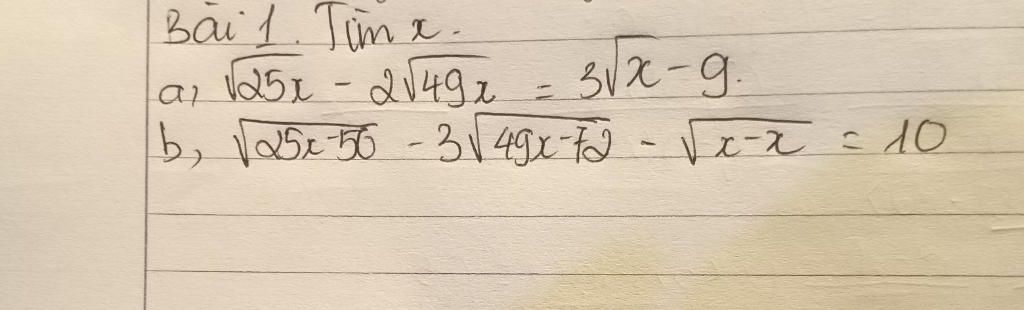 Bài 1. Tìm x.
a, √25x - 2√49x = 3√x - 9.
b, √25x-50 - 3√49x-72 - √x-x = 10